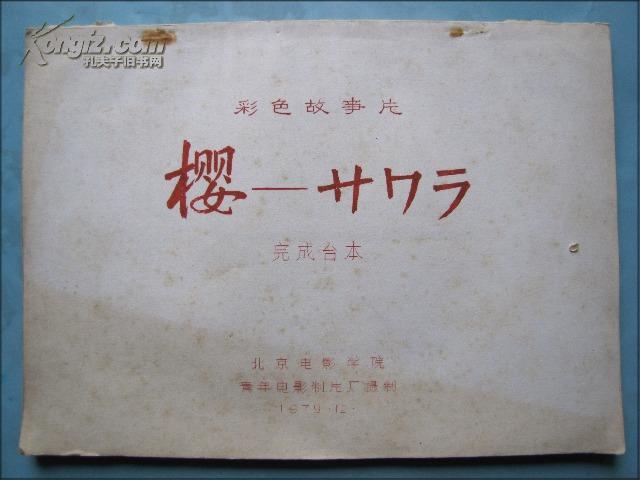 Kongfz.com
孔夫子旧书网
彩色故事片
樱—サクラ
完成台本
北京电影学院
青年电影制片厂摄制
1979·12·